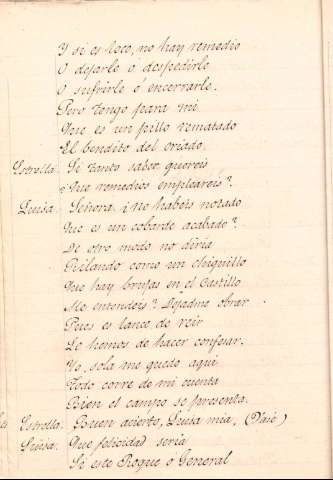 Y si es loco, no hay remedio
O dejarle ó despedirle
O sufrirle ó encerrarle.
Pero tengo para mi
Que es un pillo rematado
El bendito del criado.
Estrella. Si tanto saber quereis
¿Que remedios empleareis?
Luisa. Señora, ¿no habeis notado
Que es un cobarde acabado?
De otro modo no diria
Gritando como un chiquillo
Que hay brujas en el Castillo
Me entendeis? Dejadme obrar
Pues es lance de reir
Le hemos de hacer confesar.
Yo, sola me quedo aqui
Todo corre de mi cuenta
Bien el campo se presenta.
Estrella. Buen acierto, Luisa mia, (Vase)
Luisa. Que felicidad seria
Si este Roque ó General